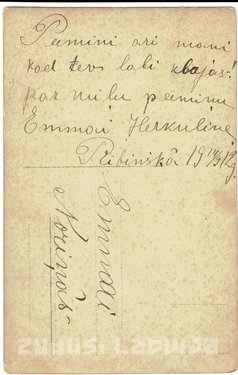 Pemini ari mani
kad tevs labi klajas!
par milu peminu
Emmai Herkuline
Ribinskâ 19 12g.
Emmai
Noriņas
ZUDUSI LATVIJA